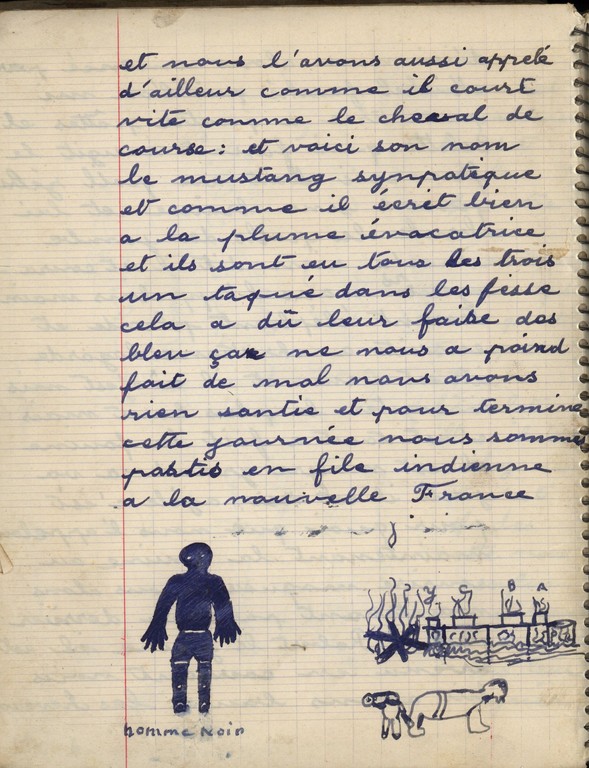 et nous l'avons aussi appelé
d'ailleur comme il court
vite comme le cheval de
course: et voici son nom
le mustang sympatique
et comme il écrit bien
a la plume évacatrice
et ils sont eu tous les trois
un taqué dans les fesse
cela a dû leur faire des
bleu ça ne nous a poind
fait de mal nous avons
rien santie et pour termine
cette journée nous somme
partis en file indienne
a la nouvelle France
homme noir
B A